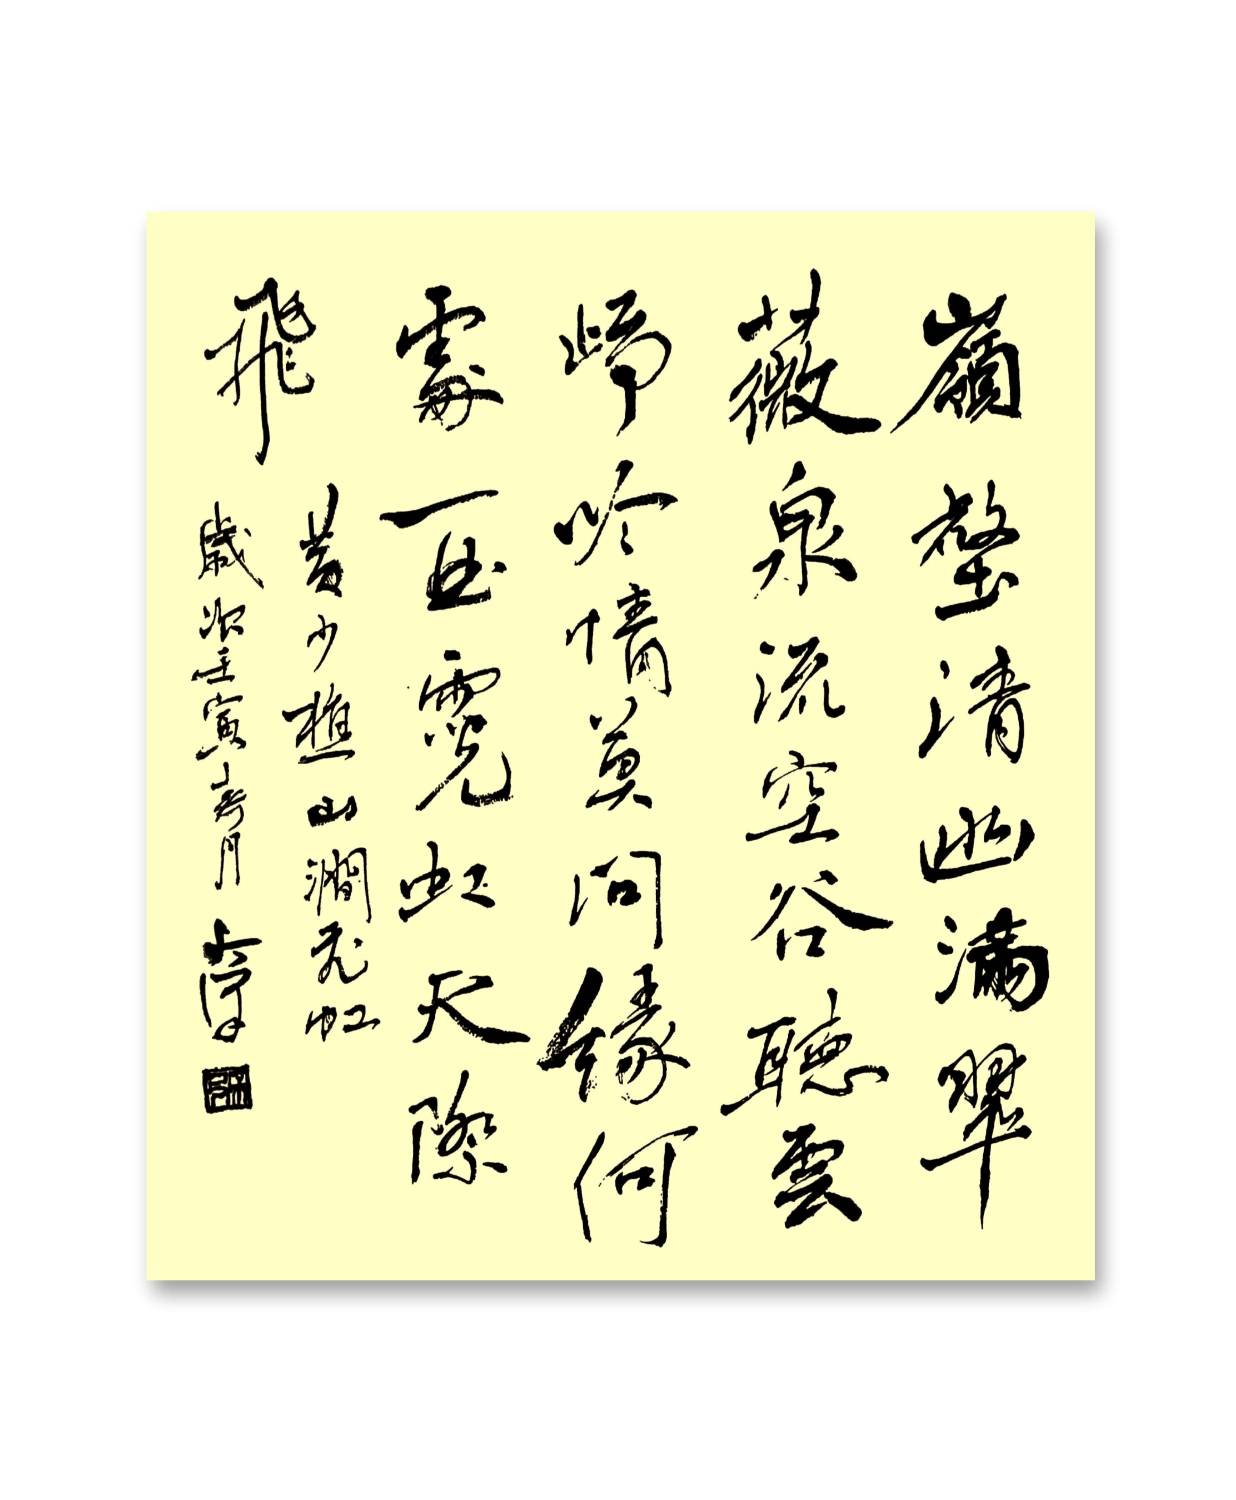 嶺壑清幽滿翠
薇泉流空谷聽雲
啼吟情莫問緣何
處一曲霓虹天際
飛
黃少樵山澗飛虹
歲次壬寅 月